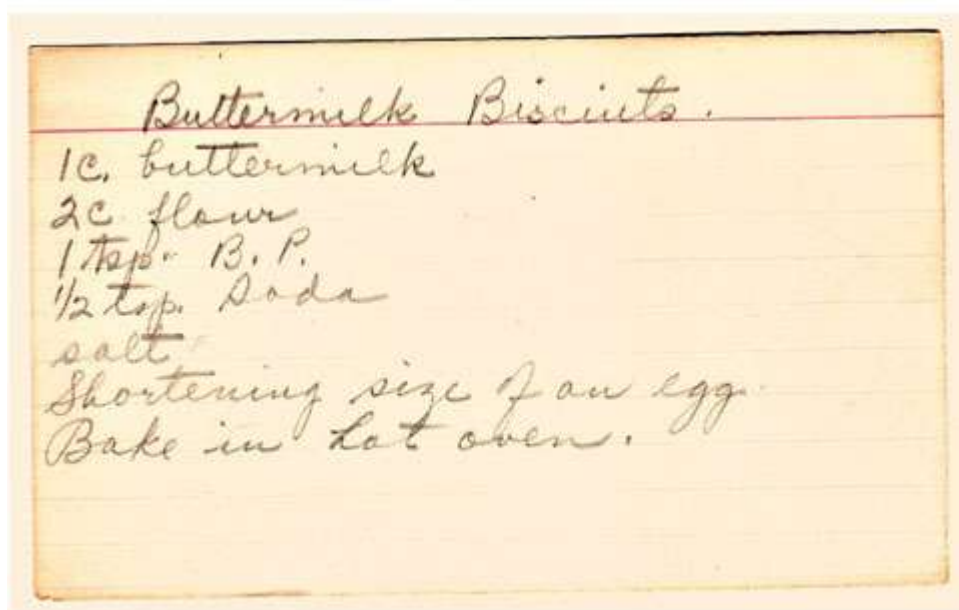 Buttermilk Bisciuts.
1c. buttermilk
2c flour
1 tsp. B.P.
1/2 tsp. Soda
salt
Shortening size of an egg.
Bake in hot oven.